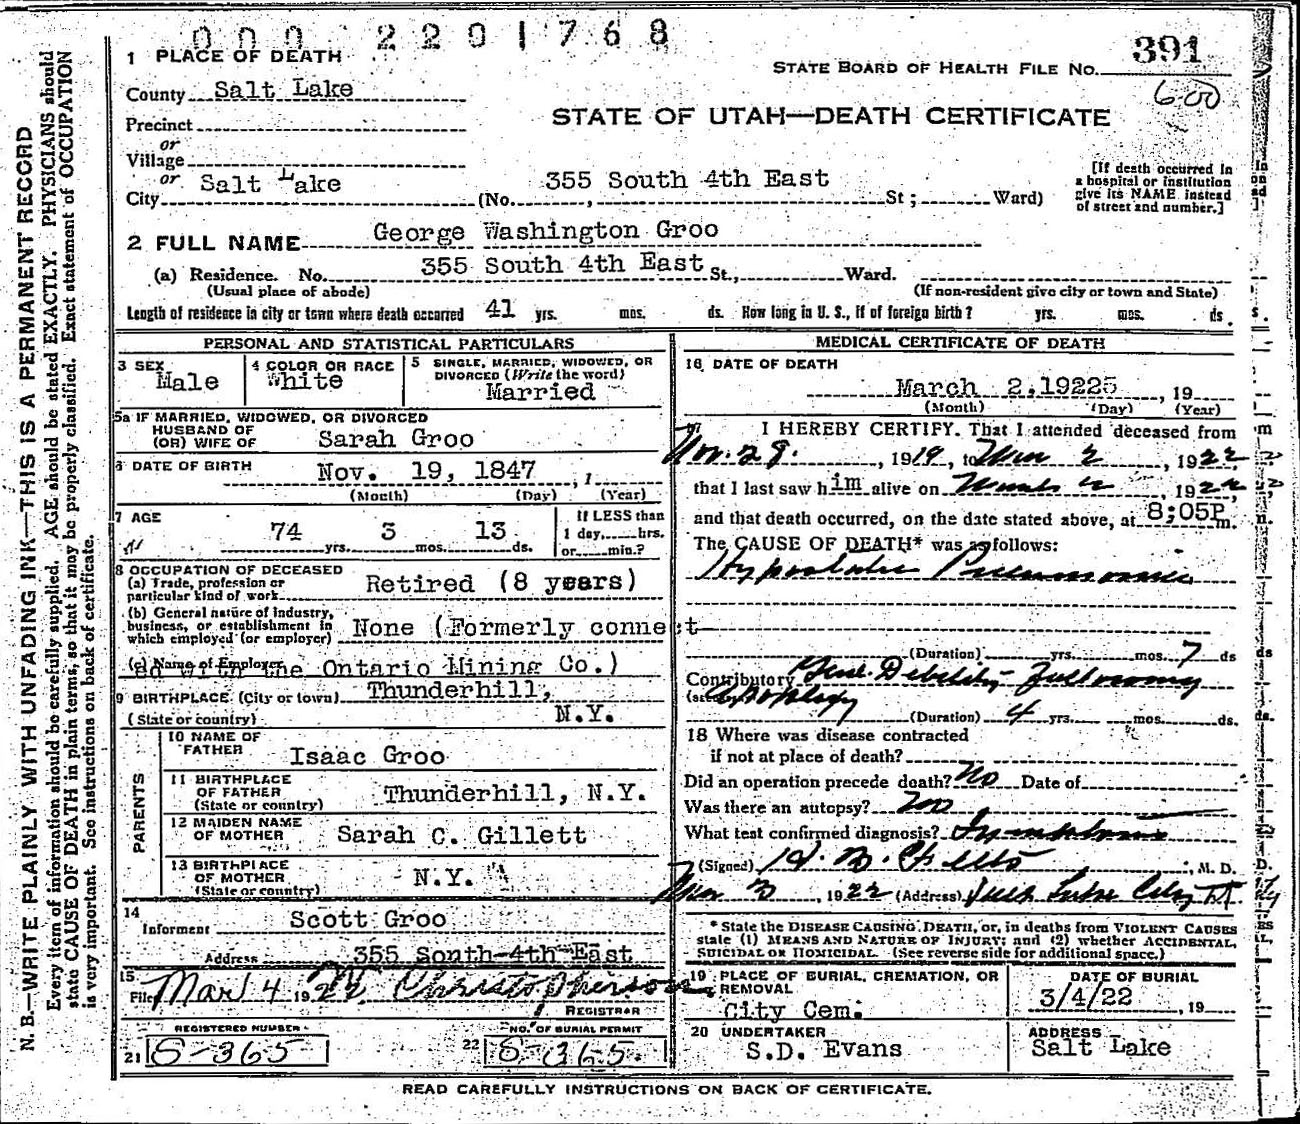 000 2201768
1 PLACE OF DEATH
STATE BOARD OF HEALTH FILE NO. 391
600
County Salt Lake
STATE OF UTAH—DEATH CERTIFICATE
Precinct
or
Village
or
City Salt Lake (No. 355 South 4th East St; Ward)
[If death occurred in a hospital or institution give its NAME instead of street and number.]
2 FULL NAME George Washington Groo
(a) Residence. No. 355 South 4th East St., Ward.
(Usual place of abode) (If non-resident give city or town and State)
Length of residence in city or town where death occurred 41 yrs. mos. ds. How long in U. S., if of foreign birth? yrs. mos. ds.
PERSONAL AND STATISTICAL PARTICULARS
3 SEX Male
4 COLOR OR RACE White
5 SINGLE, MARRIED, WIDOWED, OR DIVORCED (Write the word) Married
5a IF MARRIED, WIDOWED, OR DIVORCED
HUSBAND OF
(OR) WIFE OF Sarah Groo
6 DATE OF BIRTH Nov. 19, 1847
(Month) (Day) (Year)
7 AGE 74 yrs. 3 mos. 13 ds.
If LESS than
1 day, hrs.
or min.?
8 OCCUPATION OF DECEASED
(a) Trade, profession or particular kind of work Retired (8 years)
(b) General nature of industry, business, or establishment in which employed (or employer) None (Formerly connect
(c) Name of Employer ed with the Ontario Mining Co.)
9 BIRTHPLACE (City or town) Thunderhill,
(State or country) N.Y.
PARENTS
10 NAME OF FATHER Isaac Groo
11 BIRTHPLACE OF FATHER (State or country) Thunderhill, N.Y.
12 MAIDEN NAME OF MOTHER Sarah C. Gillett
13 BIRTHPLACE OF MOTHER (State or country) N.Y.
14
Informent Scott Groo
Address 355 South-4th-East
15
Filed Mar 4 1922 Christopherson
REGISTRAR
REGISTERED NUMBER
21 S-365
NO. OF BURIAL PERMIT
22 S-365.
MEDICAL CERTIFICATE OF DEATH
16 DATE OF DEATH
March 2,19225, 19
(Month) (Day) (Year)
17 I HEREBY CERTIFY. That I attended deceased from
Nov. 28, 1919, to Mar 2, 1922
that I last saw him alive on March 2, 1922,
and that death occurred, on the date stated above, at 8;05P m.
The CAUSE OF DEATH* was as follows:
Hypostatic Pneumonia
(Duration) yrs. mos. 7 ds
Contributory Genl Debility following
Apoplexy
(Duration) 4 yrs. mos. ds.
18 Where was disease contracted
if not at place of death?
Did an operation precede death? No Date of
Was there an autopsy? No
What test confirmed diagnosis? Symptoms
(Signed) , M. D.
Mar 3, 1922 (Address) Salt Lake City Ut.
* State the DISEASE CAUSING DEATH, or, in deaths from VIOLENT CAUSES
state (1) MEANS AND NATURE OF INJURY; and (2) whether ACCIDENTAL,
SUICIDAL OR HOMICIDAL. (See reverse side for additional space.)
19 PLACE OF BURIAL, CREMATION, OR REMOVAL
City Cem.
DATE OF BURIAL
3/4/22, 19
20 UNDERTAKER
S.D. Evans
ADDRESS
Salt Lake
READ CAREFULLY INSTRUCTIONS ON BACK OF CERTIFICATE.
N. B.—WRITE PLAINLY WITH UNFADING INK—THIS IS A PERMANENT RECORD
Every item of information should be carefully supplied. AGE should be stated EXACTLY. PHYSICIANS should
state CAUSE OF DEATH in plain terms, so that it may be properly classified. Exact statement of OCCUPATION
is very important. See instructions on back of certificate.